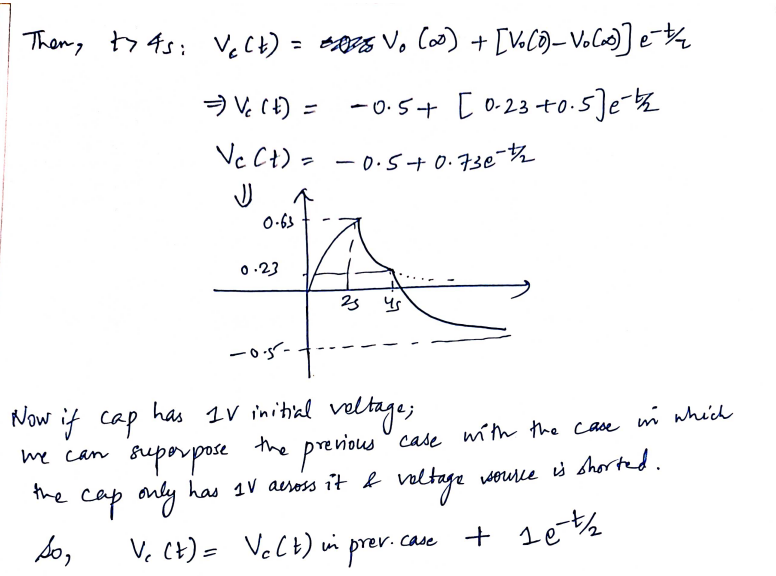 Then, t > 4s: Vc(t) = Vo(∞) + [Vo(0) – Vo(∞)] e^-t/2
⇒ Vc(t) = -0.5 + [0.23 + 0.5] e^-t/2
Vc(t) = -0.5 + 0.73e^-t/2
⇓
0.63
0.23
2s 4s
-0.5
Now if cap has 1V initial voltage;
we can superpose the previous case with the case in which
the cap only has 1V across it & voltage source is shorted.
So, Vc(t) = Vc(t) in prev. case + 1e^-t/2